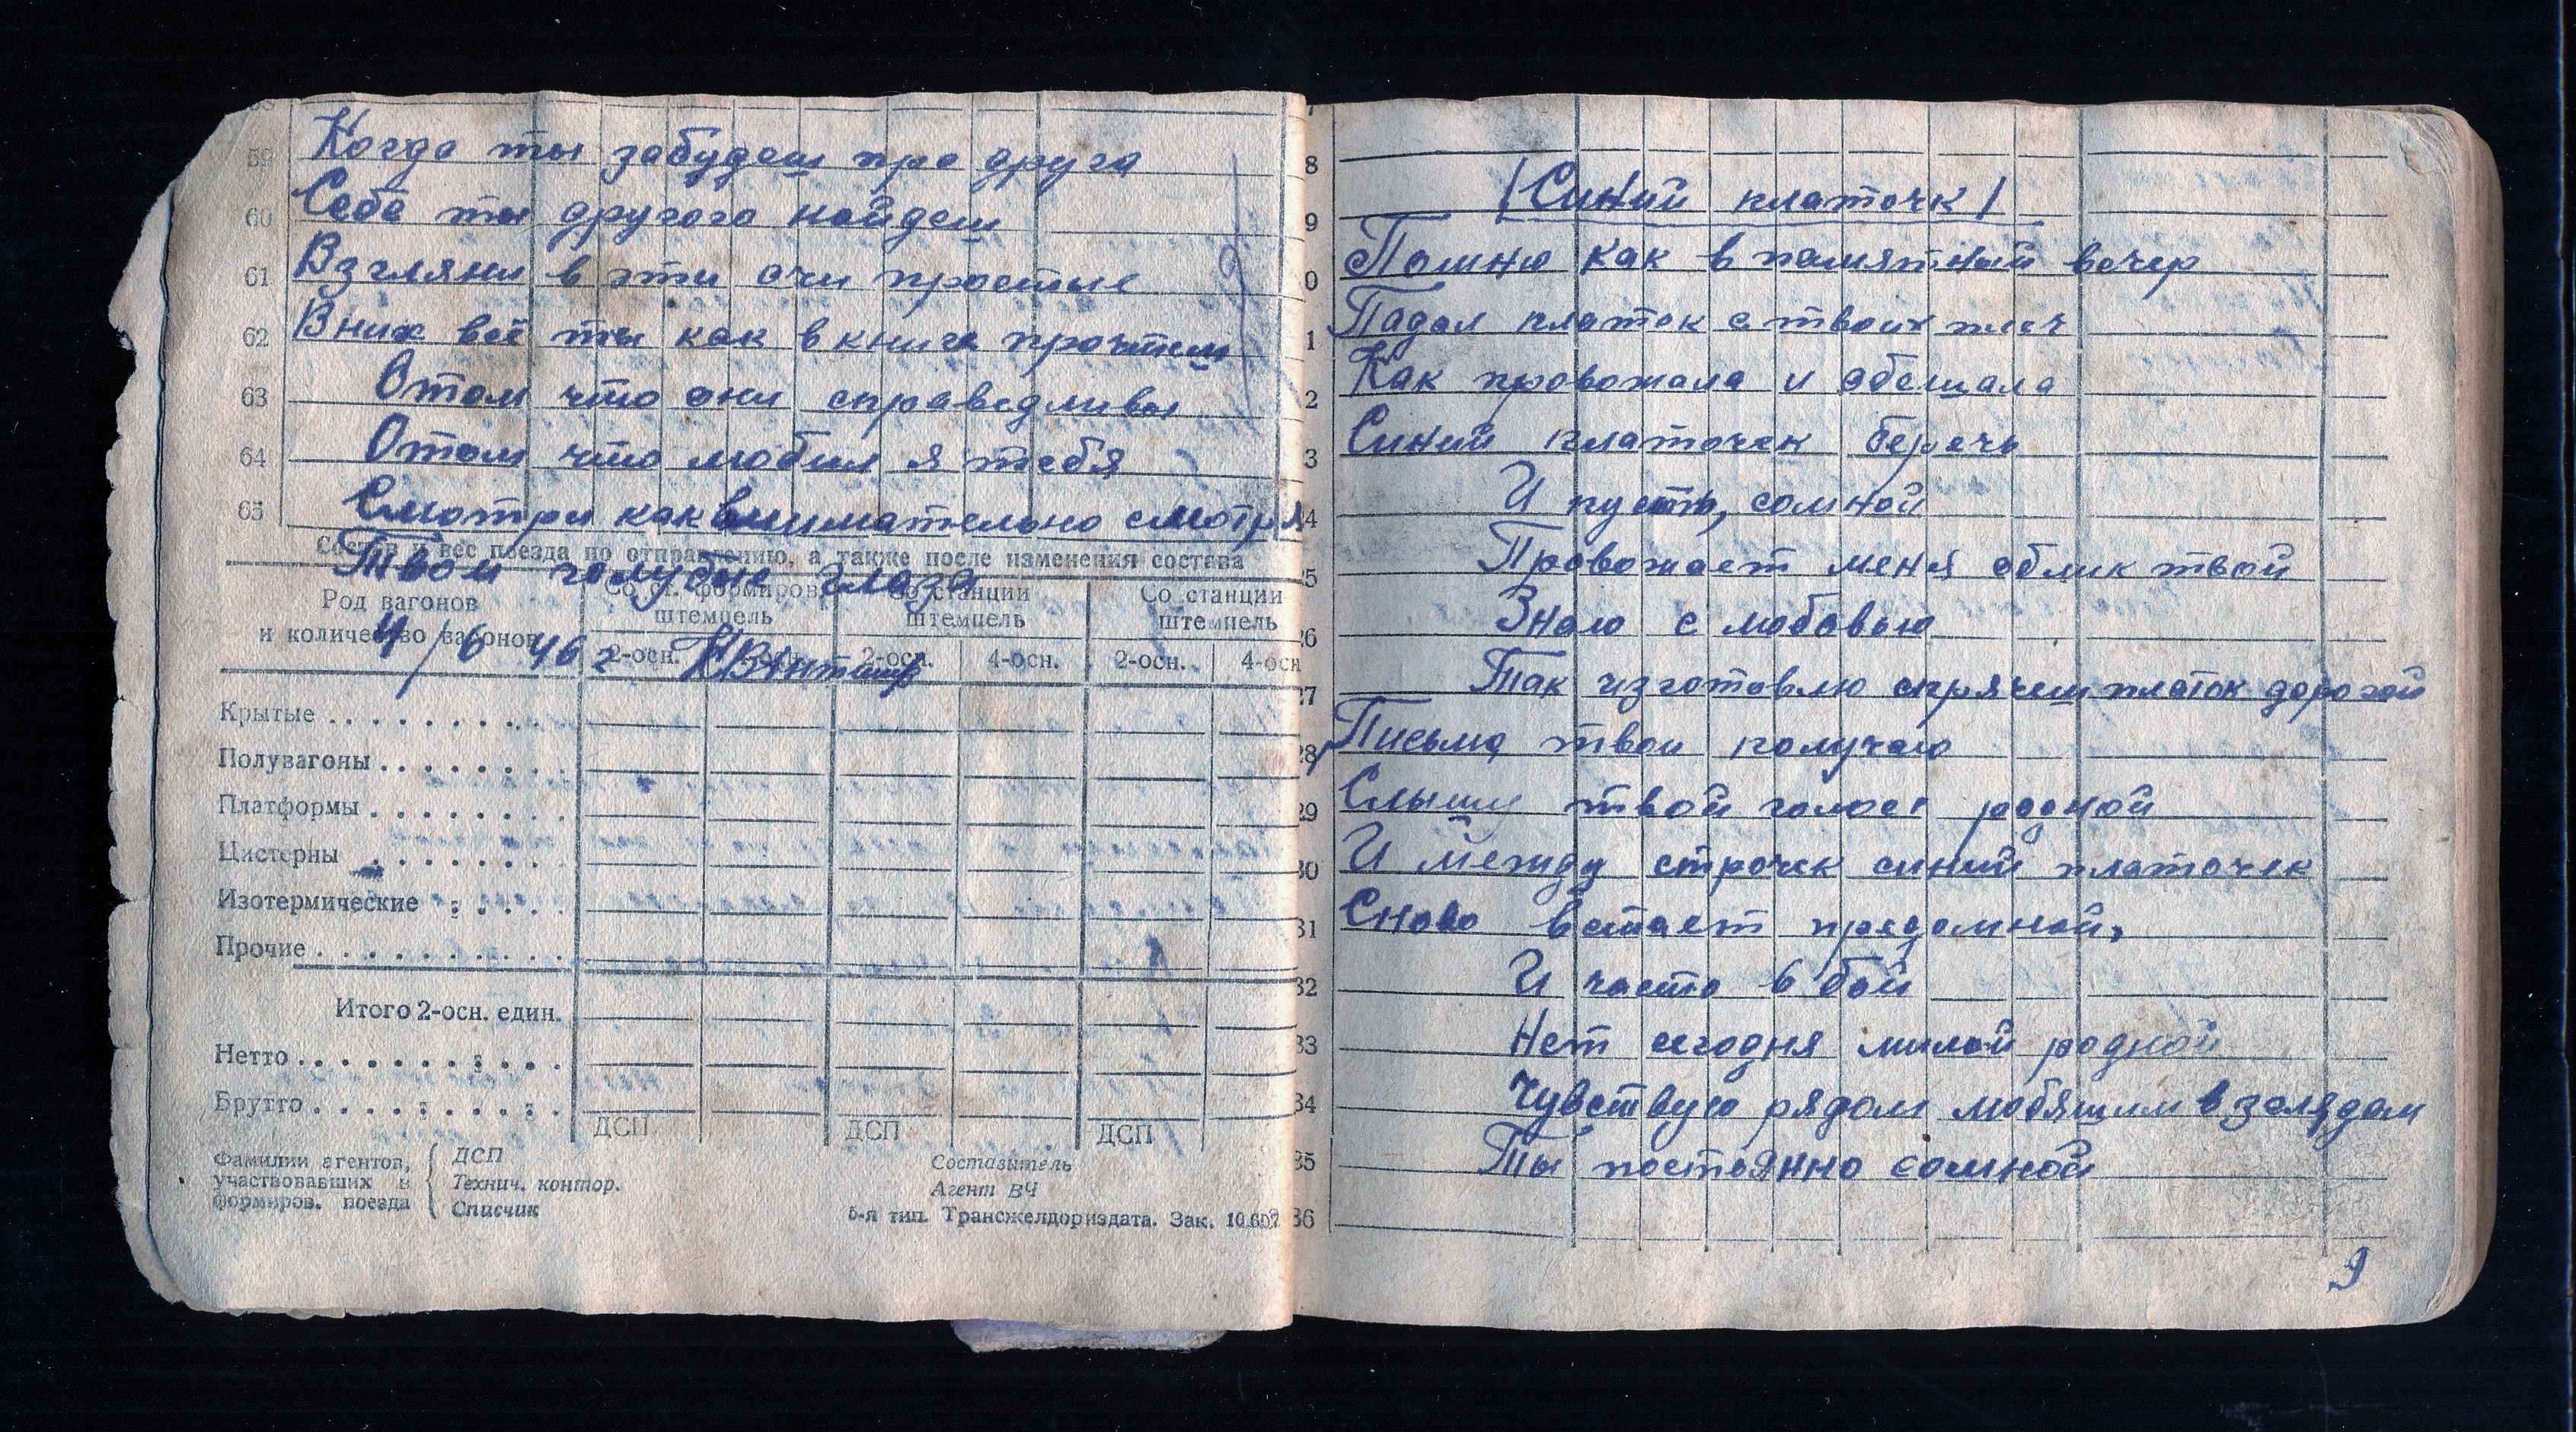 59 Когда ты забудеш про друга
60 Себе ты другого найдеш
61 Взгляни в эти очи простые
62 Вних всё ты как в книге прочтеш
63 Отом что они справедливы
64 Отом что любил я тебя
65 Смотри как внимательно смотря
Состав и вес поезда по отправлению, а также после изменения состава
Твои голубые глаза
Род вагонов и количество вагонов
Со ст. формиров. штемпель
Со станции штемпель
Со станции штемпель
4/6 46 г
2-осн. 2-осн. 4-осн. 2-осн. 4-осн
Крытые
Полувагоны
Платформы
Цистерны
Изотермические
Прочие
Итого 2-осн. един.
Нетто
Брутто
ДСП ДСП ДСП
Фамилии агентов, участвовавших в формиров. поезда
ДСП
Технич. контор.
Списчик
Составитель
Агент ВЧ
5-я тип. Трансжелдориздата. Зак. 10.607
8
9 /Синий платочк/
0 Помню как в памятный вечер
1 Падал платок с твоих плеч
2 Как провожала и обещала
3 Синий платочек беречь
4 И пусть, сомной
25 Провожает меня облик твой
26 Знаю с любовью
27 Так изготовлю спрячеш платок дорогой
28 Письма твои получаю
29 Слышу твой голос родной
30 И между строчек синий платочек
31 Сново встает предомной,
32 И часто в бой
33 Нет сегодня милой родной
34 Чувствую рядом любящим взглядом
35 Ты постоянно сомной
36
9